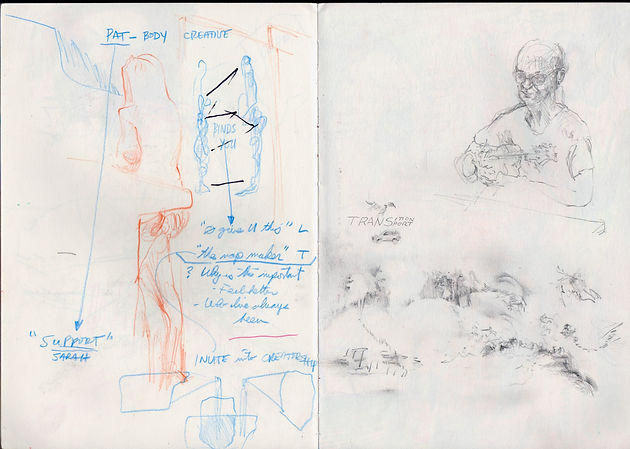 PAT - BODY CREATIVE
BINDS
YOU
"I give U this" L
"the map maker" T
? Why is this important
- Feel better
-
been
"SUPPORT"
SARAH
INVITE into CREATORSHIP
TRANSITION
PORT